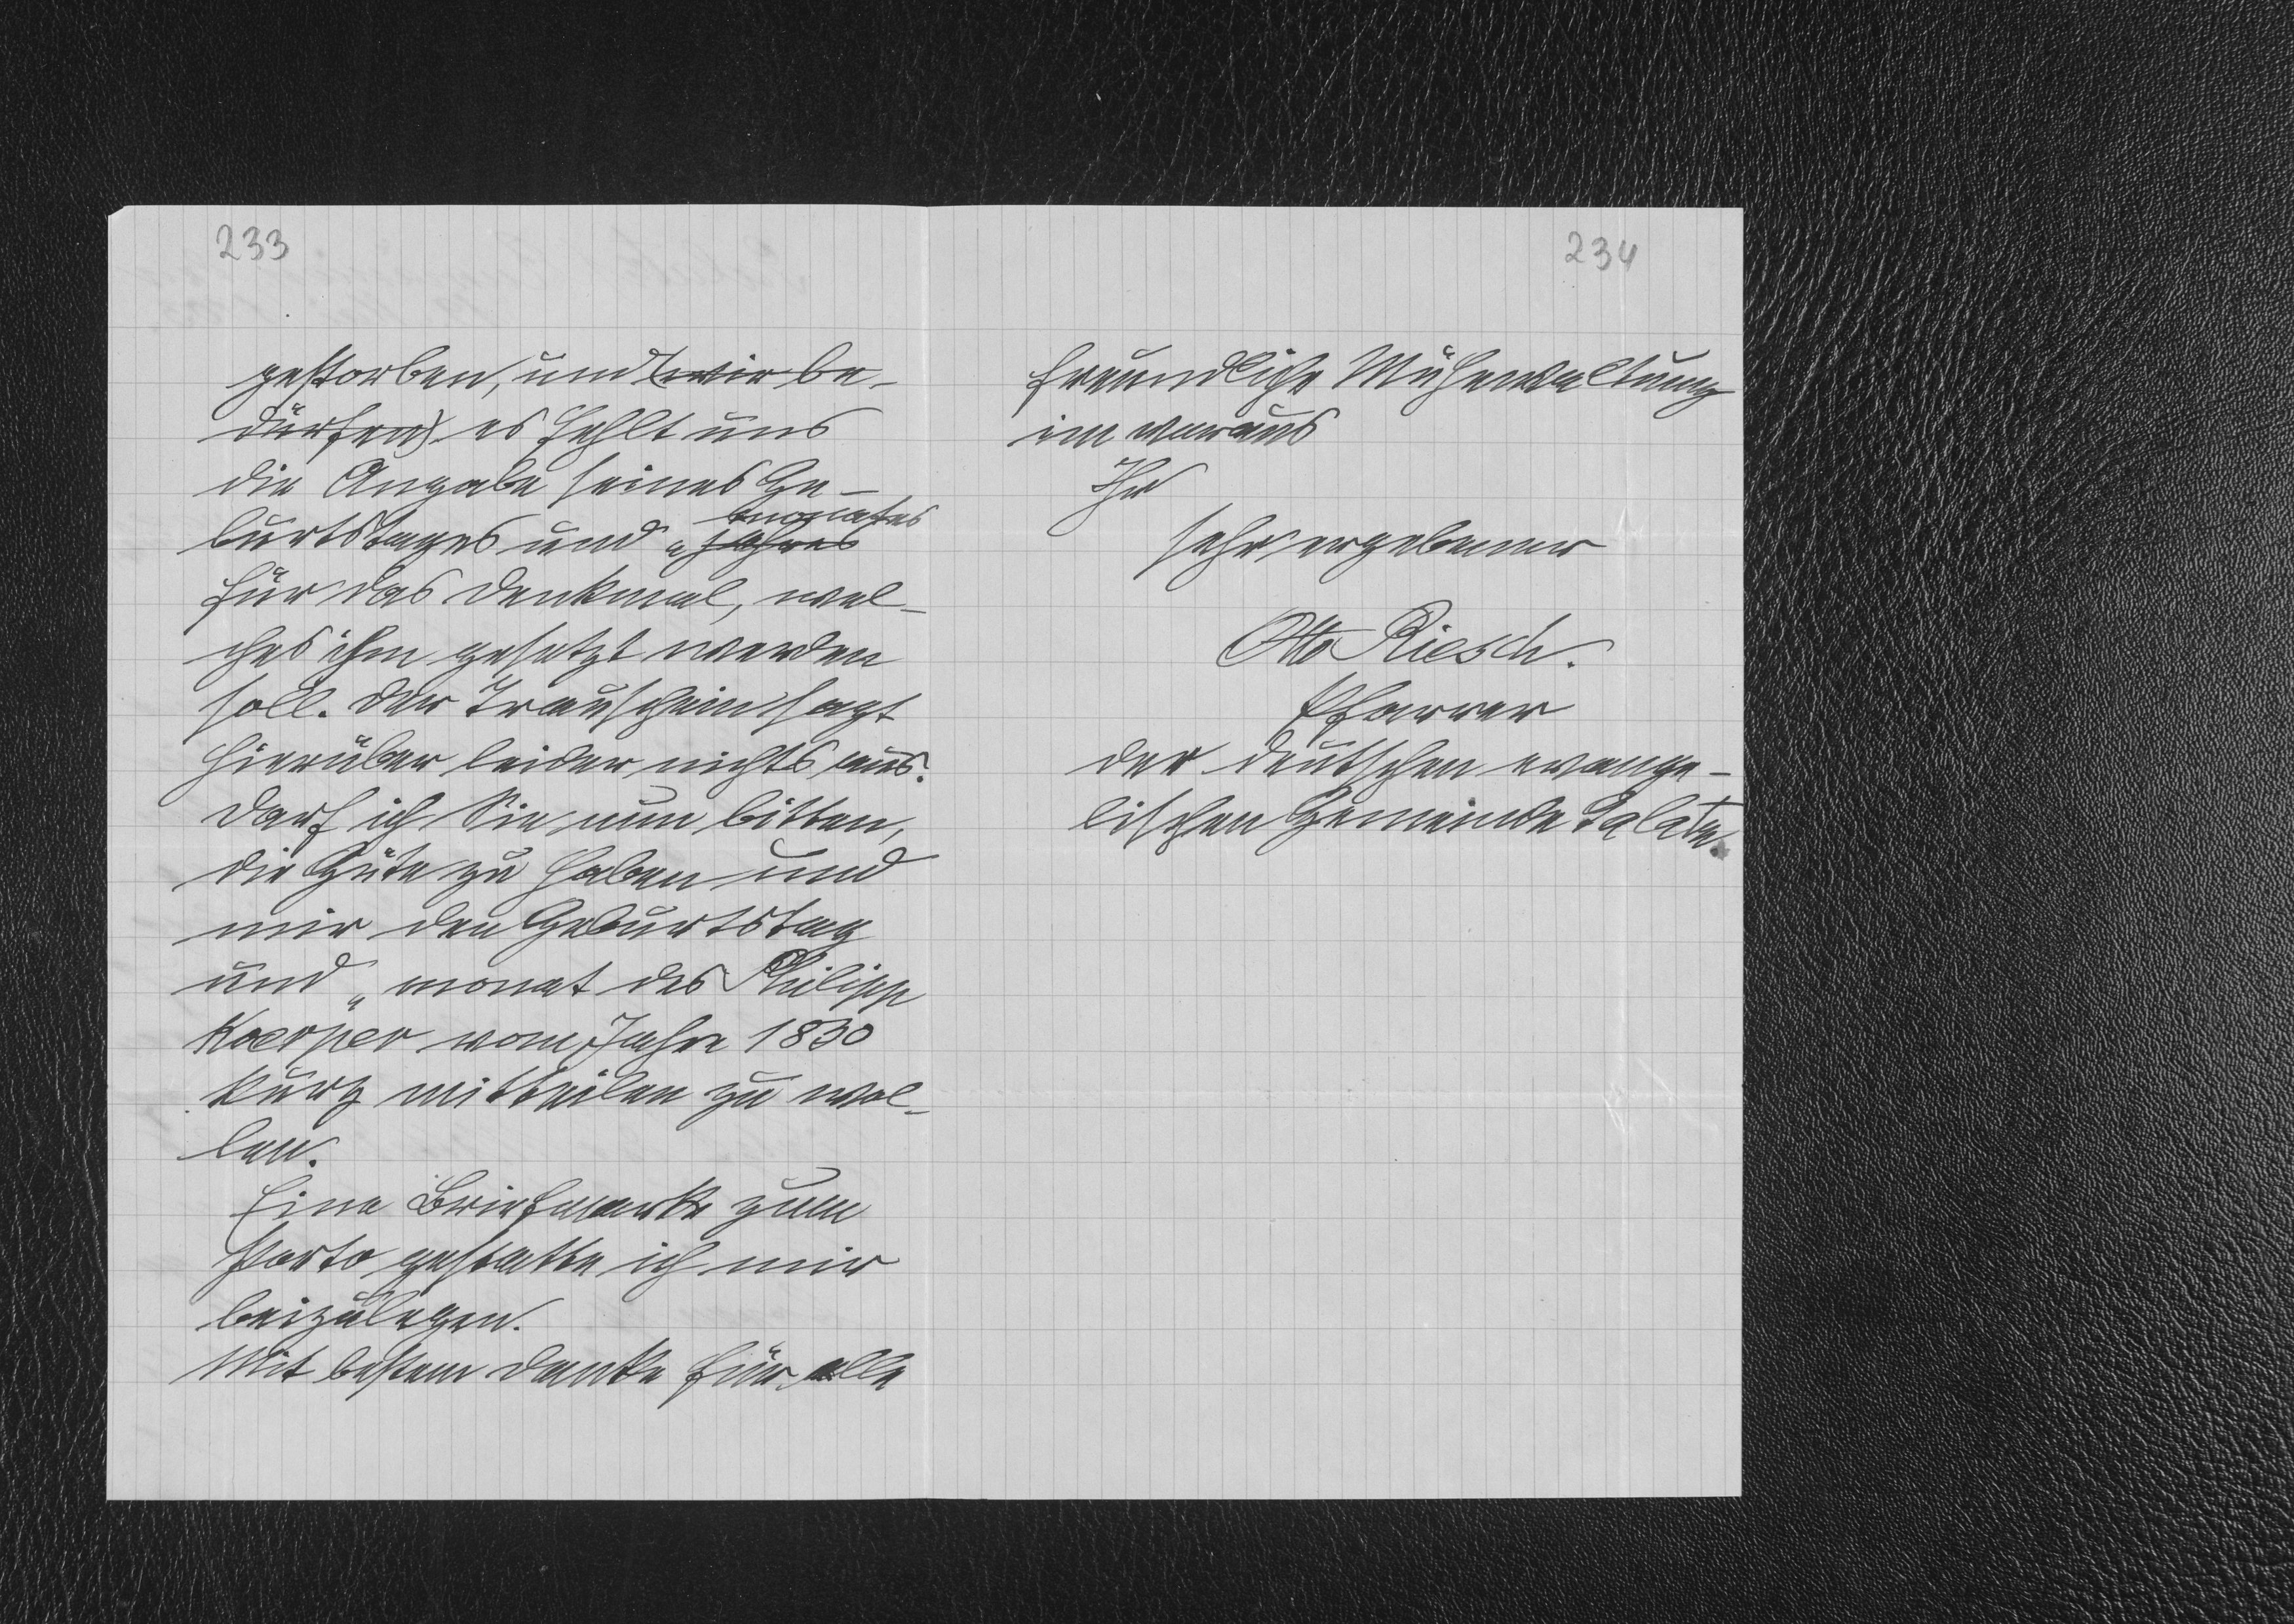 233
gestorben, und (wir be-
dürfen) es fehlt uns
die Angabe seines Ge-
burtstages und „ monates
jahres
für das Denkmal, wel-
ches ihm gesetzt werden
soll. Der Trauschein sagt
hierüber leider nichts aus.
Darf ich Sie nun bitten,
die Güte zu haben und
mir den Geburtstag
und „ monat des Philipp
Koerper vom Jahre 1830
kurz mitteilen zu wol-
len.
Eine Briefmarke zum
Porto gestatte ich mir
beizulegen.
Mit bestem Danke für alle
234
freundliche Mühewaltung
im voraus
Ihr
sehr ergebener
Otto Riesch.
Pfarrer
der deutschen evange-
lischen Gemeinde Galatz.